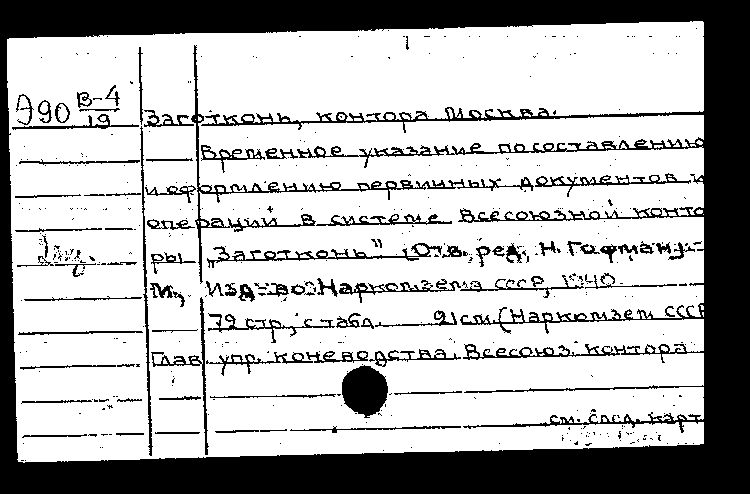 1
Э90 В-4/19
Заготконь, контора Москва.
Временное указание по составлению
и оформлению первичных документов и
операций в системе Всесоюзной конто
ры „Заготконь" (Отв. ред. Н. Гофман).-
М., Изд-во Наркомзема СССР, 1940.
72 стр., с табл. 21 см. (Наркомзем СССР
Глав. упр. коневодства. Всесоюз. контора
см. след. карт